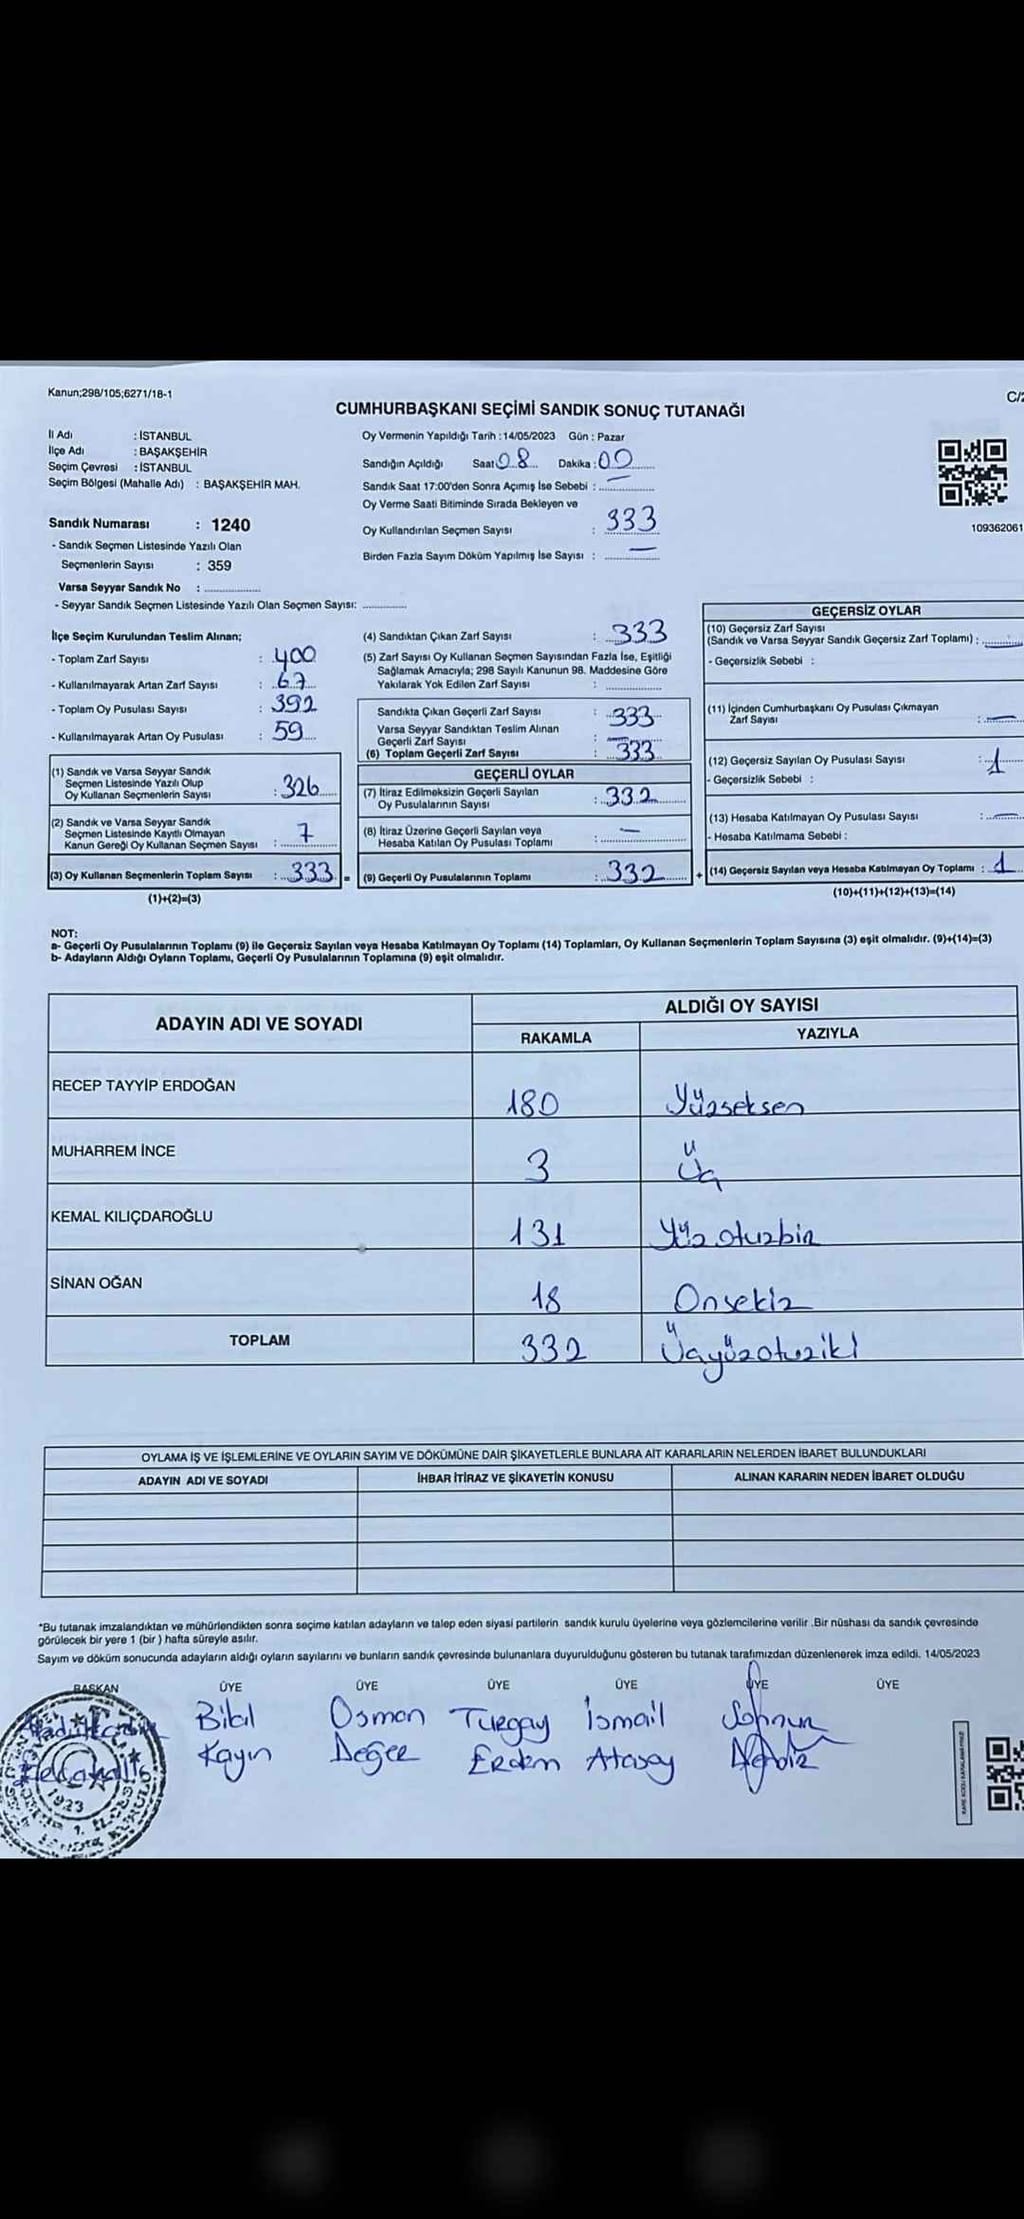 Kanun;298/105;6271/18-1
C/2
CUMHURBAŞKANI SEÇİMİ SANDIK SONUÇ TUTANAĞI
İl Adı : İSTANBUL
İlçe Adı : BAŞAKŞEHİR
Seçim Çevresi : İSTANBUL
Seçim Bölgesi (Mahalle Adı) : BAŞAKŞEHİR MAH.
Sandık Numarası : 1240
- Sandık Seçmen Listesinde Yazılı Olan
Seçmenlerin Sayısı : 359
Varsa Seyyar Sandık No :
- Seyyar Sandık Seçmen Listesinde Yazılı Olan Seçmen Sayısı:
Oy Vermenin Yapıldığı Tarih : 14/05/2023 Gün : Pazar
Sandığın Açıldığı Saat 08 Dakika : 00
Sandık Saat 17:00'den Sonra Açımış İse Sebebi : —
Oy Verme Saati Bitiminde Sırada Bekleyen ve
Oy Kullandırılan Seçmen Sayısı : 333
Birden Fazla Sayım Döküm Yapılmış İse Sayısı : —
109362061
İlçe Seçim Kurulundan Teslim Alınan;
- Toplam Zarf Sayısı : 400
- Kullanılmayarak Artan Zarf Sayısı : 67
- Toplam Oy Pusulası Sayısı : 392
- Kullanılmayarak Artan Oy Pusulası : 59
(1) Sandık ve Varsa Seyyar Sandık
Seçmen Listesinde Yazılı Olup
Oy Kullanan Seçmenlerin Sayısı : 326
(2) Sandık ve Varsa Seyyar Sandık
Seçmen Listesinde Kayıtlı Olmayan
Kanun Gereği Oy Kullanan Seçmen Sayısı : 7
(3) Oy Kullanan Seçmenlerin Toplam Sayısı : 333 =
(1)+(2)=(3)
(4) Sandıktan Çıkan Zarf Sayısı : 333
(5) Zarf Sayısı Oy Kullanan Seçmen Sayısından Fazla İse, Eşitliği
Sağlamak Amacıyla; 298 Sayılı Kanunun 98. Maddesine Göre
Yakılarak Yok Edilen Zarf Sayısı :
Sandıkta Çıkan Geçerli Zarf Sayısı : 333
Varsa Seyyar Sandıktan Teslim Alınan
Geçerli Zarf Sayısı : —
(6) Toplam Geçerli Zarf Sayısı : 333
GEÇERLİ OYLAR
(7) İtiraz Edilmeksizin Geçerli Sayılan
Oy Pusulalarının Sayısı : 332
(8) İtiraz Üzerine Geçerli Sayılan veya
Hesaba Katılan Oy Pusulası Toplamı : —
(9) Geçerli Oy Pusulalarının Toplamı : 332 +
GEÇERSİZ OYLAR
(10) Geçersiz Zarf Sayısı
(Sandık ve Varsa Seyyar Sandık Geçersiz Zarf Toplamı) :
- Geçersizlik Sebebi :
(11) İçinden Cumhurbaşkanı Oy Pusulası Çıkmayan
Zarf Sayısı : —
(12) Geçersiz Sayılan Oy Pusulası Sayısı : 1
- Geçersizlik Sebebi :
(13) Hesaba Katılmayan Oy Pusulası Sayısı : —
- Hesaba Katılmama Sebebi :
(14) Geçersiz Sayılan veya Hesaba Katılmayan Oy Toplamı : 1
(10)+(11)+(12)+(13)=(14)
NOT:
a- Geçerli Oy Pusulalarının Toplamı (9) ile Geçersiz Sayılan veya Hesaba Katılmayan Oy Toplamı (14) Toplamları, Oy Kullanan Seçmenlerin Toplam Sayısına (3) eşit olmalıdır. (9)+(14)=(3)
b- Adayların Aldığı Oyların Toplamı, Geçerli Oy Pusulalarının Toplamına (9) eşit olmalıdır.
ADAYIN ADI VE SOYADI
ALDIĞI OY SAYISI
RAKAMLA YAZIYLA
RECEP TAYYİP ERDOĞAN 180 Yüzseksen
MUHARREM İNCE 3 Üç
KEMAL KILIÇDAROĞLU 131 Yüzotuzbir
SİNAN OĞAN 18 Onsekiz
TOPLAM 332 Üçyüzotuziki
OYLAMA İŞ VE İŞLEMLERİNE VE OYLARIN SAYIM VE DÖKÜMÜNE DAİR ŞİKAYETLERLE BUNLARA AİT KARARLARIN NELERDEN İBARET BULUNDUKLARI
ADAYIN ADI VE SOYADI İHBAR İTİRAZ VE ŞİKAYETİN KONUSU ALINAN KARARIN NEDEN İBARET OLDUĞU
*Bu tutanak imzalandıktan ve mühürlendikten sonra seçime katılan adayların ve talep eden siyasi partilerin sandık kurulu üyelerine veya gözlemcilerine verilir .Bir nüshası da sandık çevresinde
görülecek bir yere 1 (bir ) hafta süreyle asılır.
Sayım ve döküm sonucunda adayların aldığı oyların sayılarını ve bunların sandık çevresinde bulunanlara duyurulduğunu gösteren bu tutanak tarafımızdan düzenlenerek imza edildi. 14/05/2023
BAŞKAN ÜYE ÜYE ÜYE ÜYE ÜYE ÜYE
Bilal Osman Turgay İsmail
Kayın Değer Erdem Atasay
1923